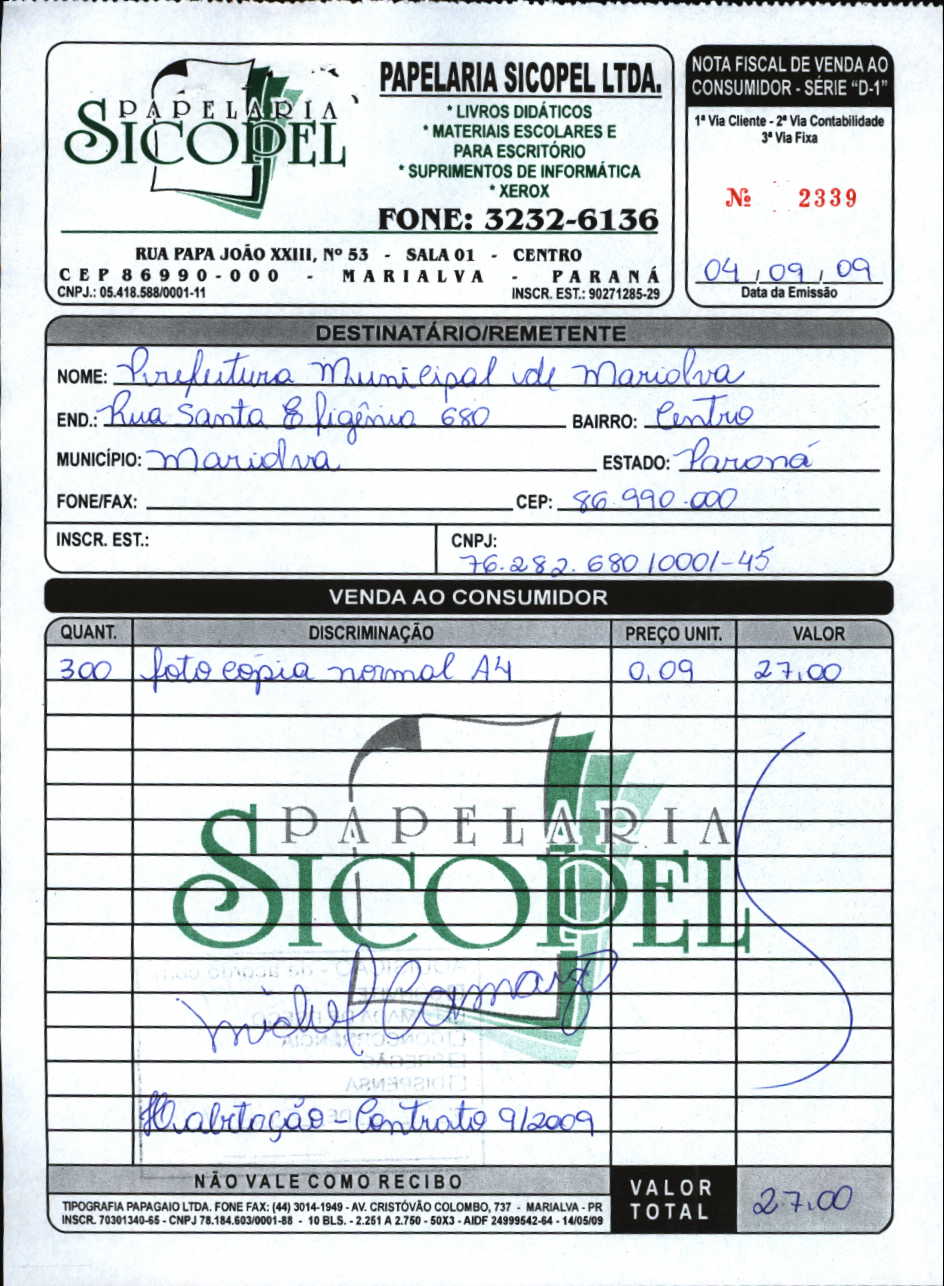 PAPELARIA
SICOPEL
PAPELARIA SICOPEL LTDA.
* LIVROS DIDÁTICOS
* MATERIAIS ESCOLARES E
PARA ESCRITÓRIO
* SUPRIMENTOS DE INFORMÁTICA
* XEROX
FONE: 3232-6136
RUA PAPA JOÃO XXIII, Nº 53 - SALA 01 - CENTRO
CEP 86990-000 - MARIALVA - PARANÁ
CNPJ.: 05.418.588/0001-11 INSCR. EST.: 90271285-29
NOTA FISCAL DE VENDA AO
CONSUMIDOR - SÉRIE "D-1"
1ª Via Cliente - 2ª Via Contabilidade
3ª Via Fixa
Nº 2339
04/09/09
Data da Emissão
DESTINATÁRIO/REMETENTE
NOME: Prefeitura Municipal de Marialva
END.: Rua Santa Efigênia 680 BAIRRO: Centro
MUNICÍPIO: Marialva ESTADO: Paraná
FONE/FAX: CEP: 86.990.000
INSCR. EST.: CNPJ:
76.282.680/0001-45
VENDA AO CONSUMIDOR
QUANT. DISCRIMINAÇÃO PREÇO UNIT. VALOR
300 foto cópia normal A4 0,09 27,00
PAPELARIA
SICOPEL
AQUISIÇÃO - de acordo com
TOMADA DE PREÇO
CONCORRÊNCIA
PREGÃO
DISPENSA
Habitação - Contrato 9/2009
NÃO VALE COMO RECIBO
VALOR
TOTAL 27,00
TIPOGRAFIA PAPAGAIO LTDA. FONE FAX: (44) 3014-1949 - AV. CRISTÓVÃO COLOMBO, 737 - MARIALVA - PR
INSCR. 70301340-65 - CNPJ 78.184.603/0001-88 - 10 BLS. - 2.251 A 2.750 - 50X3 - AIDF 24999542-64 - 14/05/09